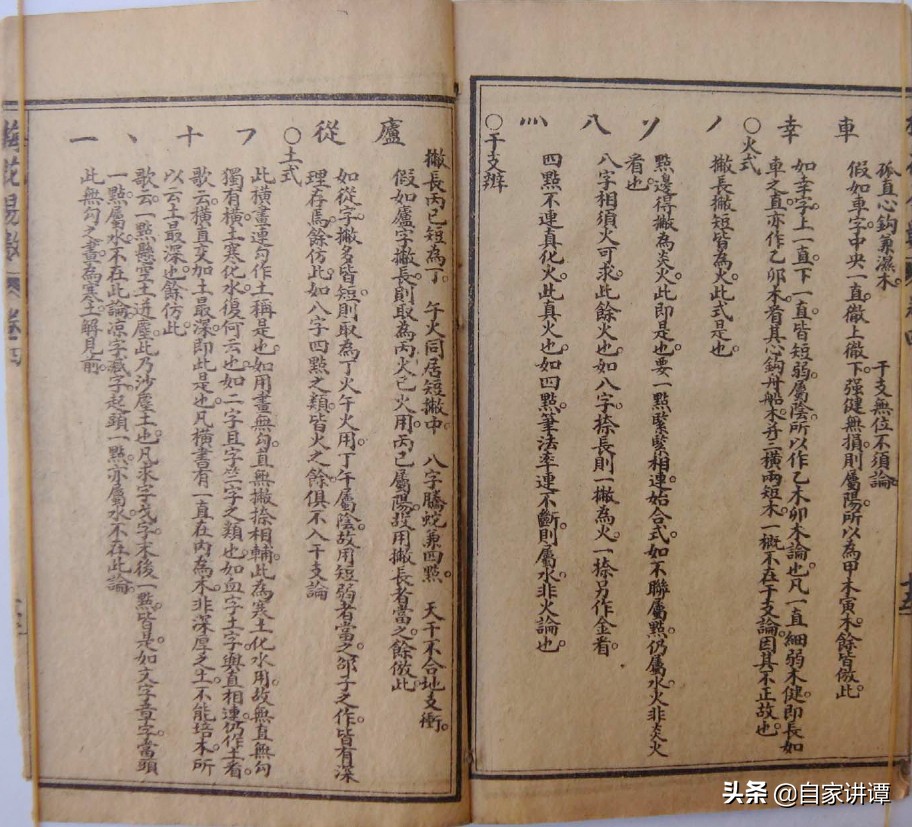 孤直心鈎兼濕木。 干支無位不須論。
車
假如車字中央一直。徹上徹下强健無損。則屬陽。所以為甲木寅木。餘皆倣此。
幸
如幸字上一直下一直。皆短弱。屬陰。所以作乙木卯木論也。凡一直細弱木健。即長如
車之直。亦作乙卯木看。其心鈎舟船木。并三橫兩短木。一概不在干支論。因其不正故也。
○火式
丿
撇長撇短皆為火。此式是也。
點邊得撇為炎火。此即是也。要一點緊緊相連。始合式。如不聯屬。點仍屬水。火非炎火
看也。
八
八字相須火可求。此餘火也。如八字捺長。則一撇為火。一捺另作金看。
灬
四點不連真化火。此真火也。如四點筆法牽連不斷。則屬水。非火論也。
○干支辨
撇長丙巳短為丁。 午火同居短撇中。 八字騰蛇兼四點。 天干不合地支衝。
廬
假如廬字撇長。則取為丙火巳火用。丙巳屬陽。故用撇長者當之。餘倣此
從
如從字撇多皆短。則取為丁火午火用。丁午屬陰。故用短弱者當之。邵子之作。皆有深
理存焉。餘仿此。如八字四點之類。皆火之餘。俱不入干支論
○土式
此橫畫連勾作土稱是也。如用畫無勾。且無撇捺相輔。此為寒土化水用。故無直無勾
獨有橫。土寒化水復何云也。如二字且字竺字之類也。如血字土字與直相連。仍作土看。
十
歌云。橫直交加土最深。即此是也。凡橫畫有一直在內為木。非深厚之土。不能培木。所
以云土最深也。餘仿此。
丶
歌云。一點懸空土迸塵。此乃沙塵土也。凡求字戈字末後一點。皆是。如文字章字。當頭
一點。屬水。不在此論。凉字起頭一點。亦屬水。不在此論
一
此無勾之畫。為寒土。解見前。
頭条 @自家讲谭